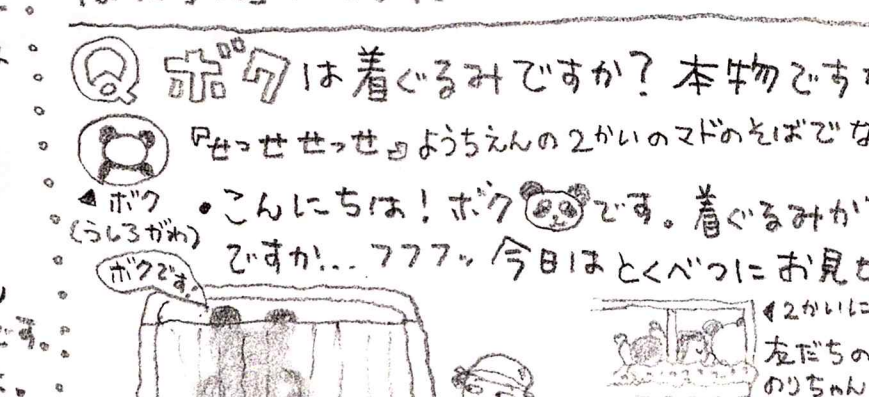 Q ボクは着ぐるみですか？本物ですか
『せっせせっせ』ようちえんの2かいのマドのそばでな
◀ボク
(うしろがわ)
・こんにちは！ボクです。着ぐるみが
ですか!...フフフッ 今日はとくべつにお見せ
ボクです！
◀2かいに
友だちの
のりちゃん
す。